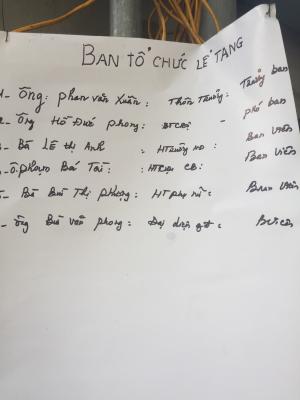 BAN TỔ CHỨC LỄ TANG
1- Ông: phan văn Xuân: Thôn Trưởng: Trưởng ban
2- Ông Hồ Đức phong: BTCĐ - phó ban
- Bà Lê thị Anh : HTrưởng Ban viên
- Ô. phan Bá Tài: : HT CCB: Ban viên
5- Bà Bùi Thị phượng: HT phụ nữ: Ban viên
- Ông Bùi văn phong: Đại diện gđ: B.viên